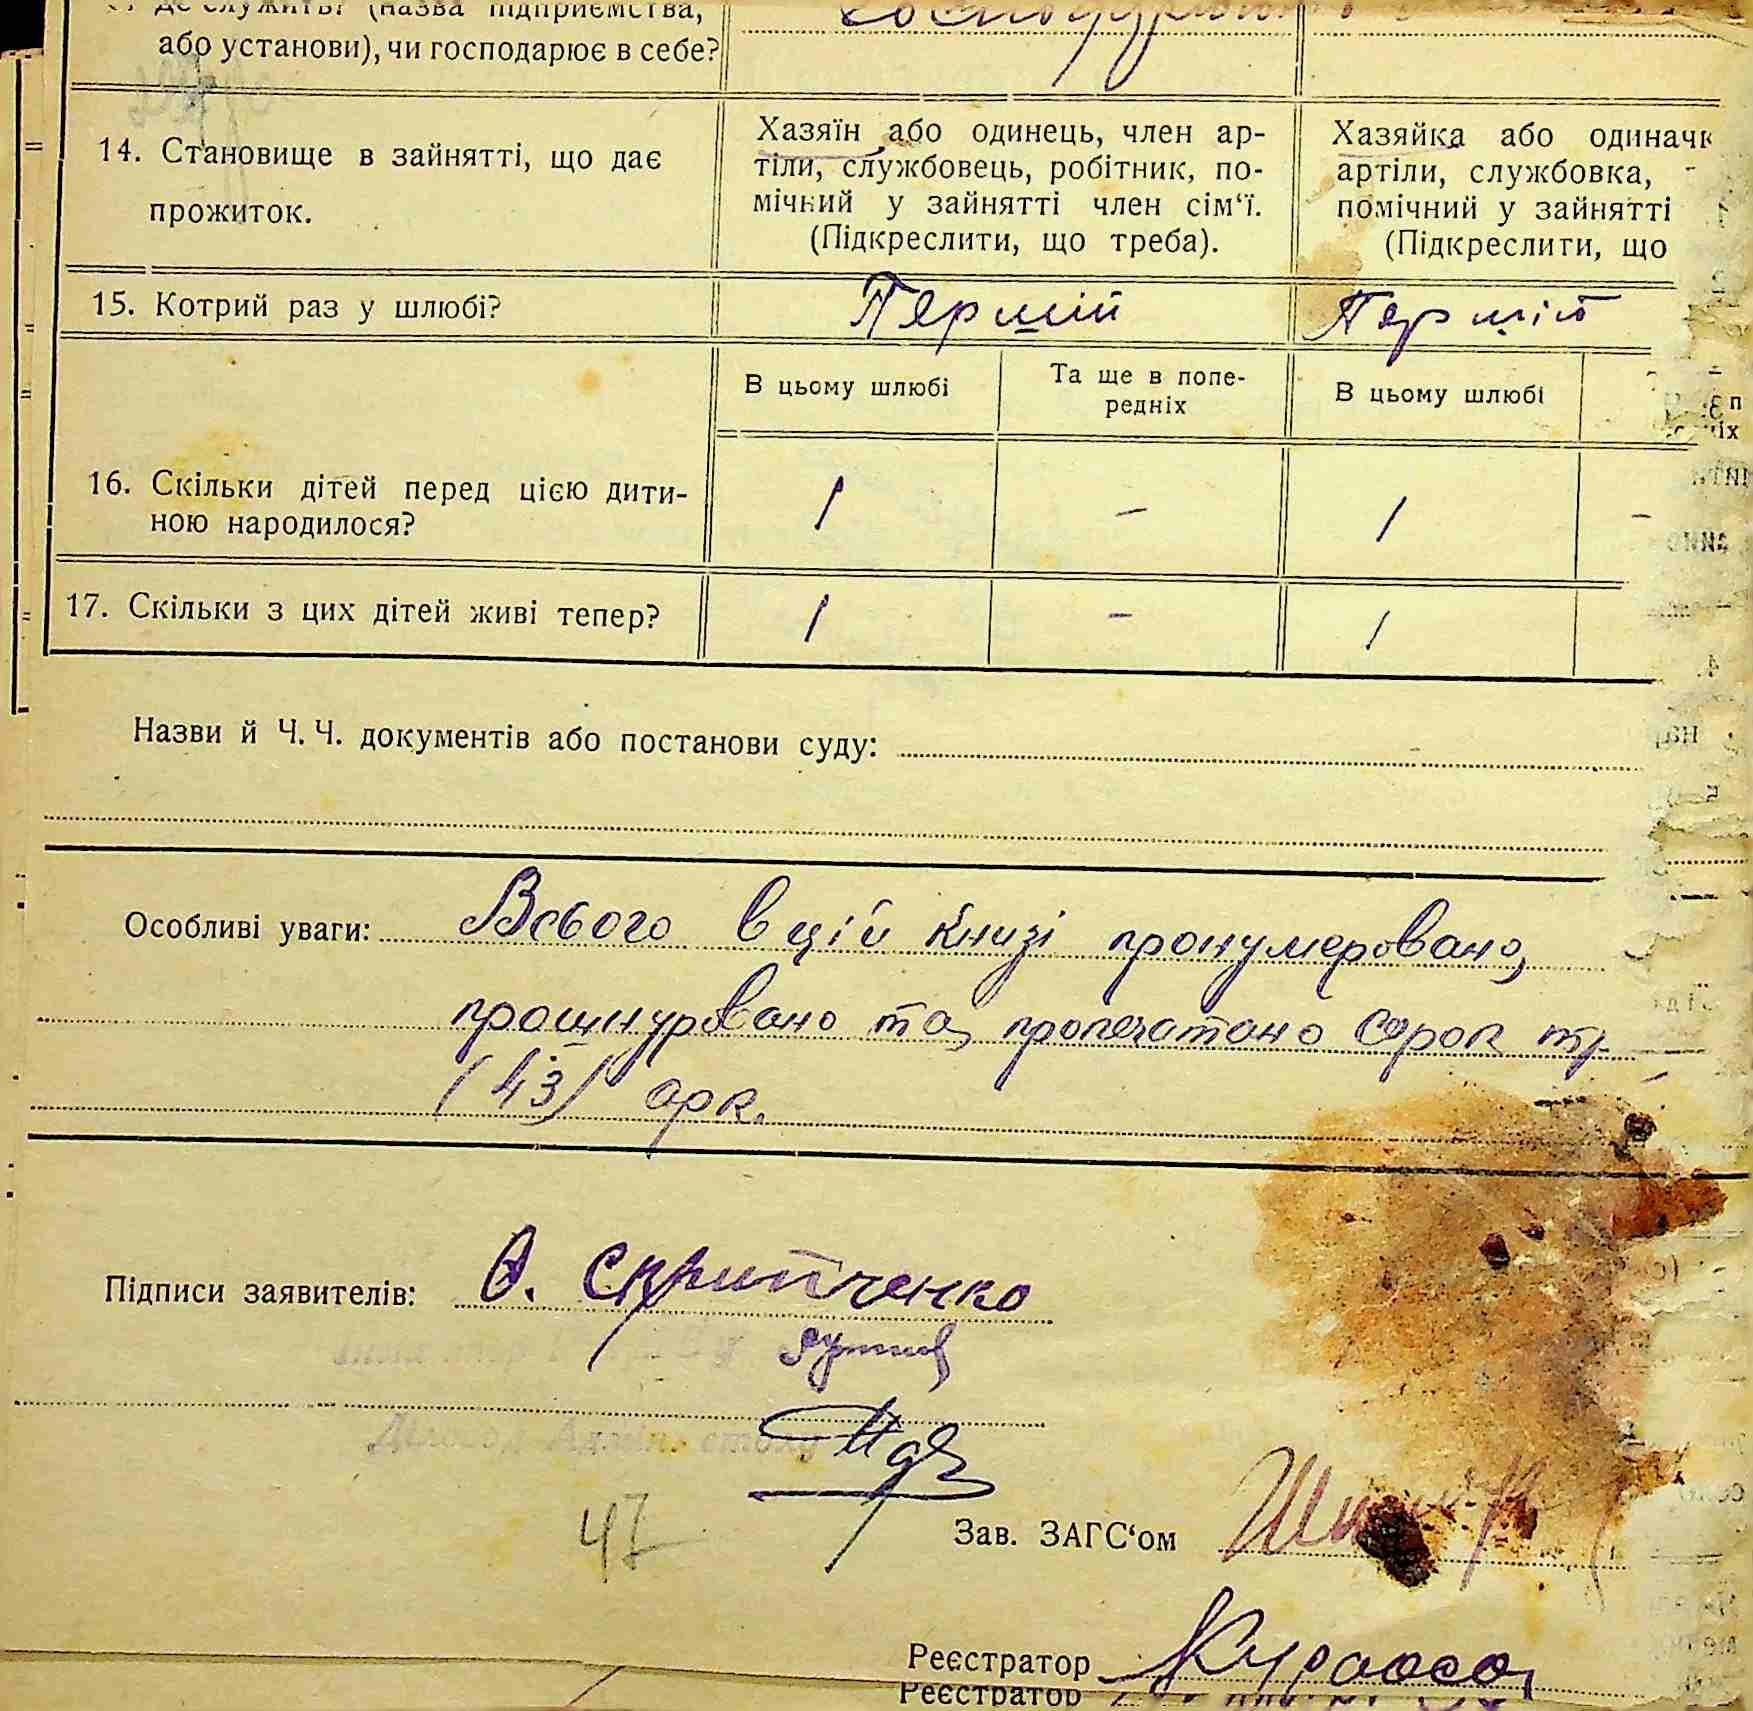 де служить? (назва підприємства,
або установи), чи господарює в себе?
14. Становище в зайнятті, що дає
прожиток.
Хазяїн або одинець, член ар-
тіли, службовець, робітник, по-
мічний у зайнятті член сім‘ї.
(Підкреслити, що треба).
Хазяйка або одиначк
артіли, службовка,
помічний у зайнятті
(Підкреслити, що
15. Котрий раз у шлюбі?
Перший
Перший
В цьому шлюбі
Та ще в попе-
редніх
В цьому шлюбі
16. Скільки дітей перед цією дити-
ною народилося?
1 - 1 -
17. Скільки з цих дітей живі тепер?
1 - 1
Назви й Ч. Ч. документів або постанови суду:
Особливі уваги: Всього в цій книзі пронумеровано,
прошнуровано та пропечатано сорок тр.
(43) арк.
Підписи заявителів: О. Скрипченко
47
Зав. ЗАГС‘ом
Реєстратор
Реєстратор